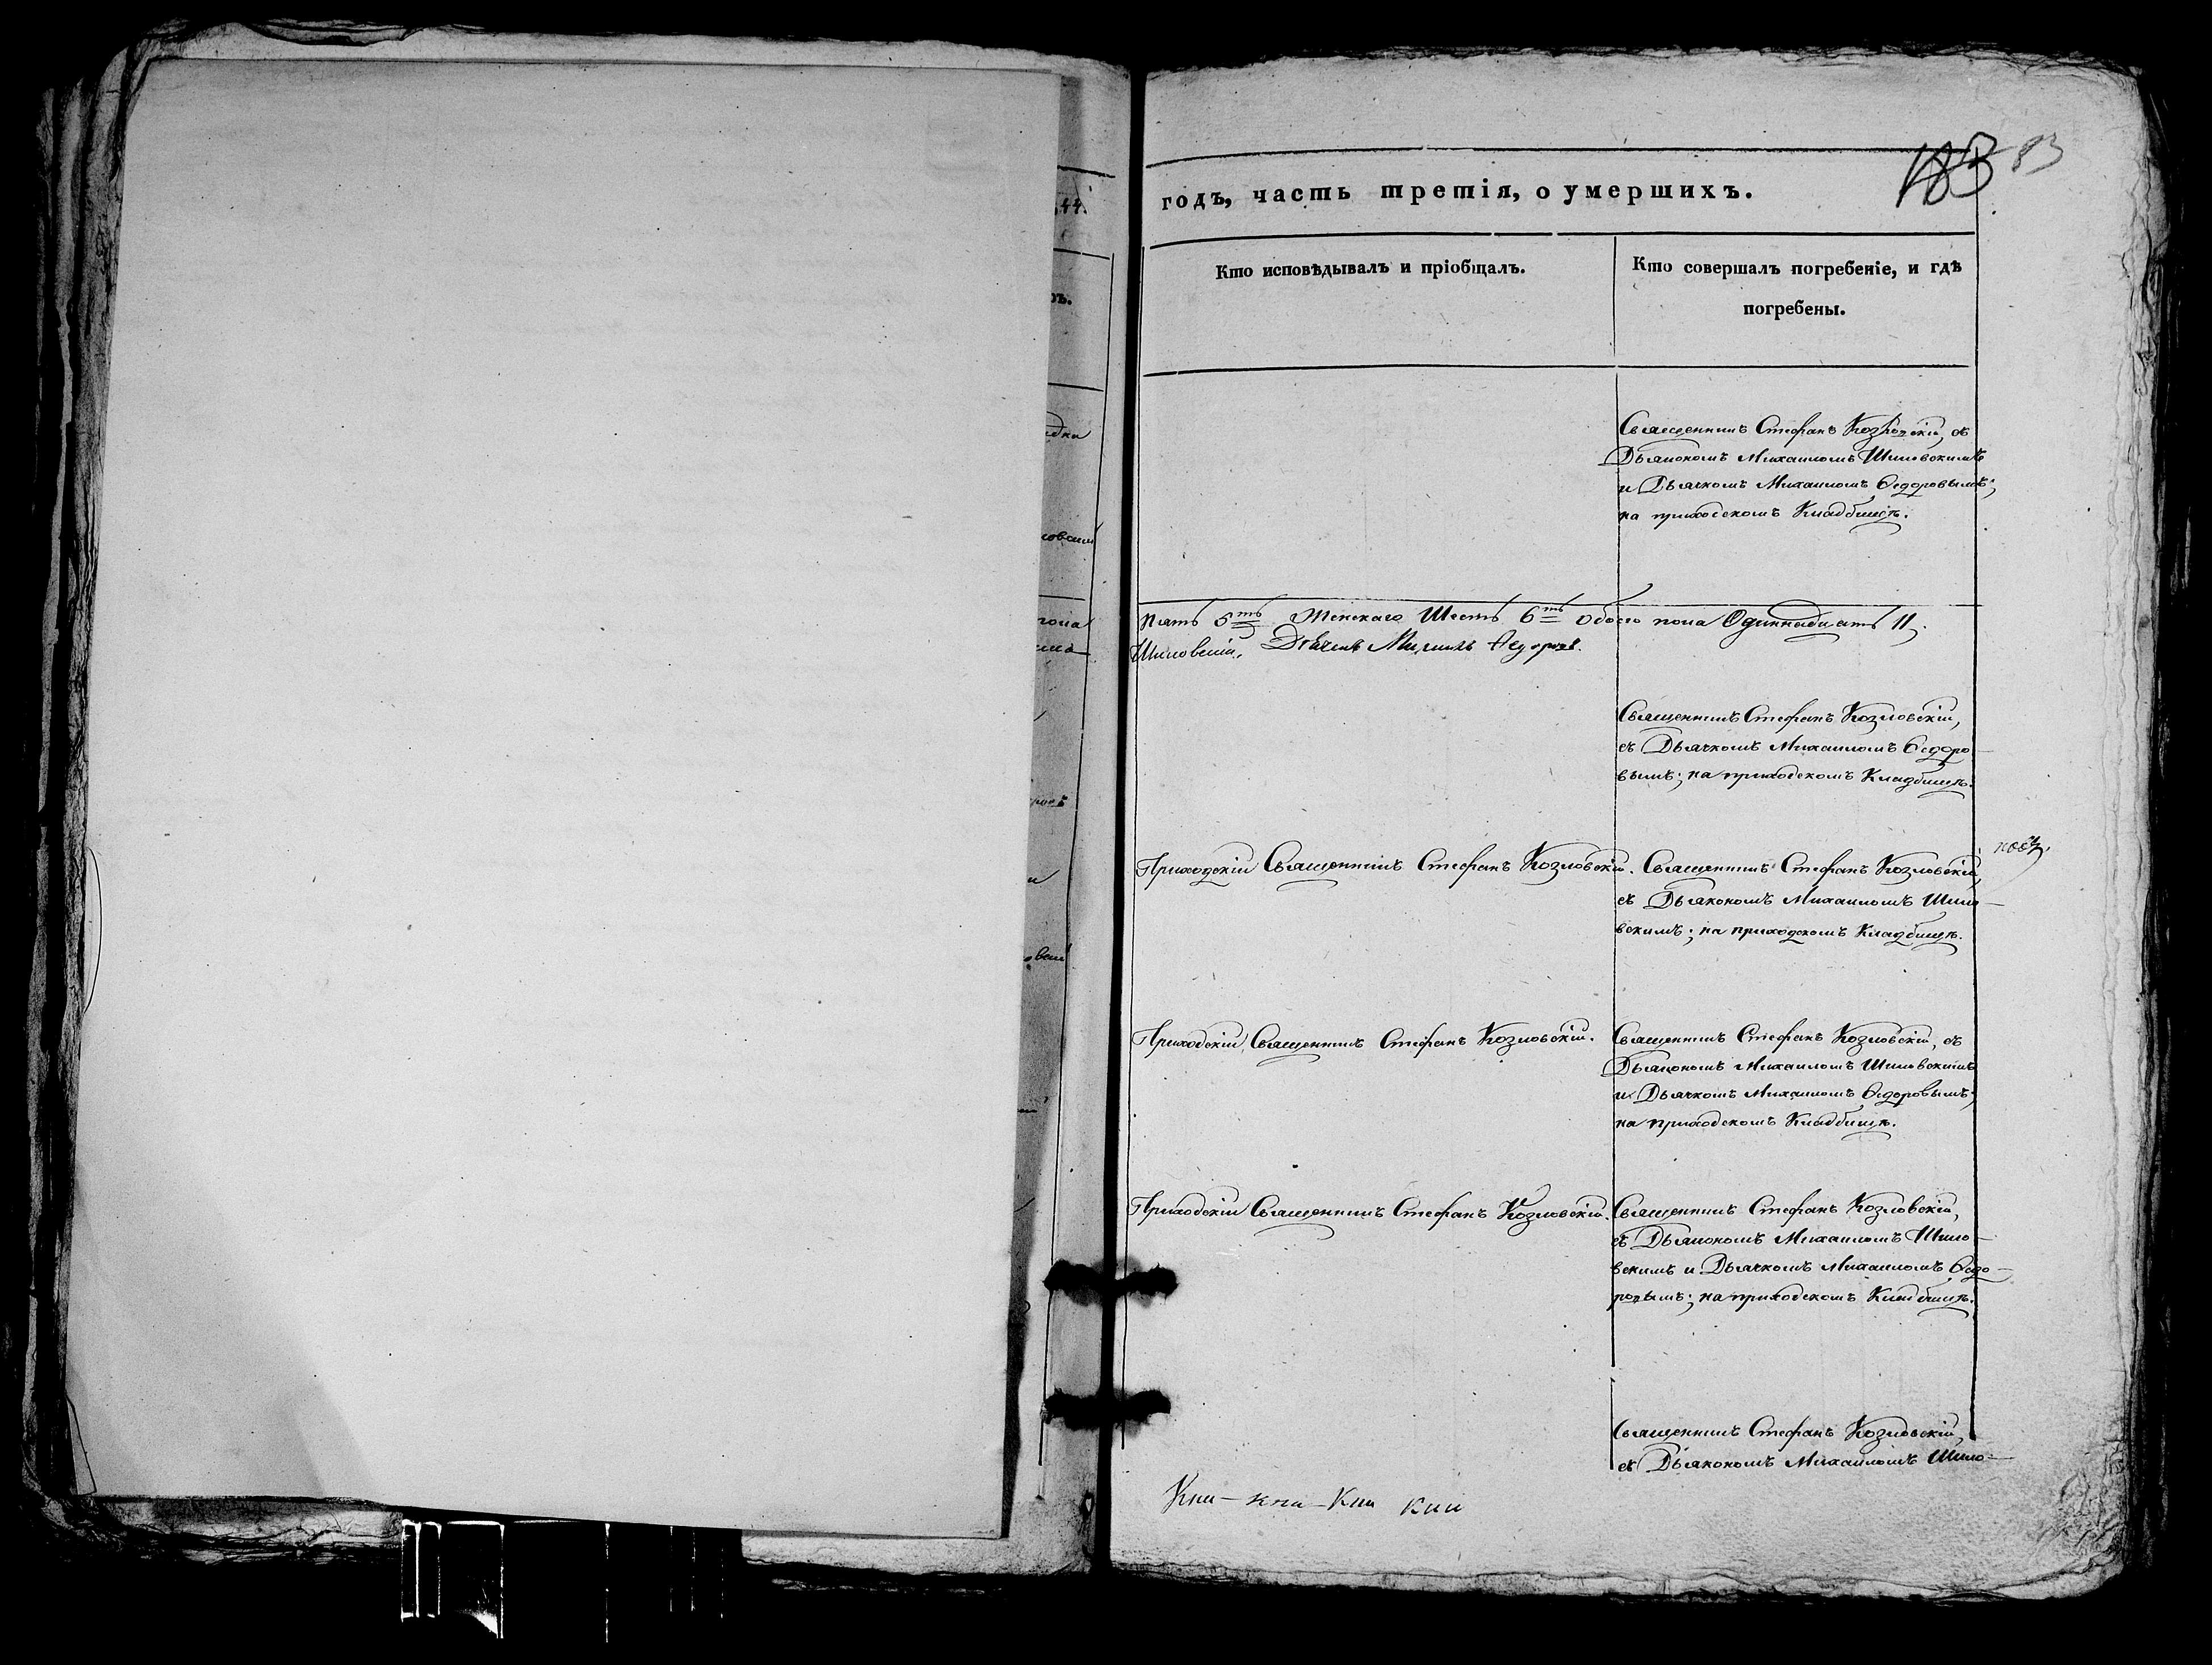 183 83
годъ, часть третія, о умершихъ.
Кто исповѣдывалъ и пріобщалъ.
Кто совершалъ погребеніе, и гдѣ
погребены.
44.
ръ.
Священникъ Стефанъ Козловскій, съ
Дьякономъ Михаиломъ Шиловскимъ
и Дьячкомъ Михаиломъ Ѳедоровымъ;
на приходскомъ Кладбищѣ.
пять 5ть Женскаго Шесть 6ть обоего пола Одиннадцать 11,
Шиловскій, Дьячекъ Михаилъ Ѳедоровъ.
Священникъ Стефанъ Козловскій,
съ Дьячкомъ Михаиломъ Ѳедоро-
вымъ; на приходскомъ Кладбищѣ.
Приходскій Священникъ Стефанъ Козловскій.
Священникъ Стефанъ Козловскій,
съ Дьякономъ Михаиломъ Шило-
вскимъ; на приходскомъ Кладбищѣ.
Приходскій Священникъ Стефанъ Козловскій.
Священникъ Стефанъ Козловскій, съ
Дьякономъ Михаиломъ Шиловскимъ
и Дьячкомъ Михаиломъ Ѳедоровымъ;
на приходскомъ Кладбищѣ.
Приходскій Священникъ Стефанъ Козловскій.
Священникъ Стефанъ Козловскій,
съ Дьякономъ Михаиломъ Шило-
вскимъ и Дьячкомъ Михаиломъ Ѳедо-
ровымъ; на приходскомъ Кладбищѣ.
Священникъ Стефанъ Козловскій,
съ Дьякономъ Михаиломъ Шило-